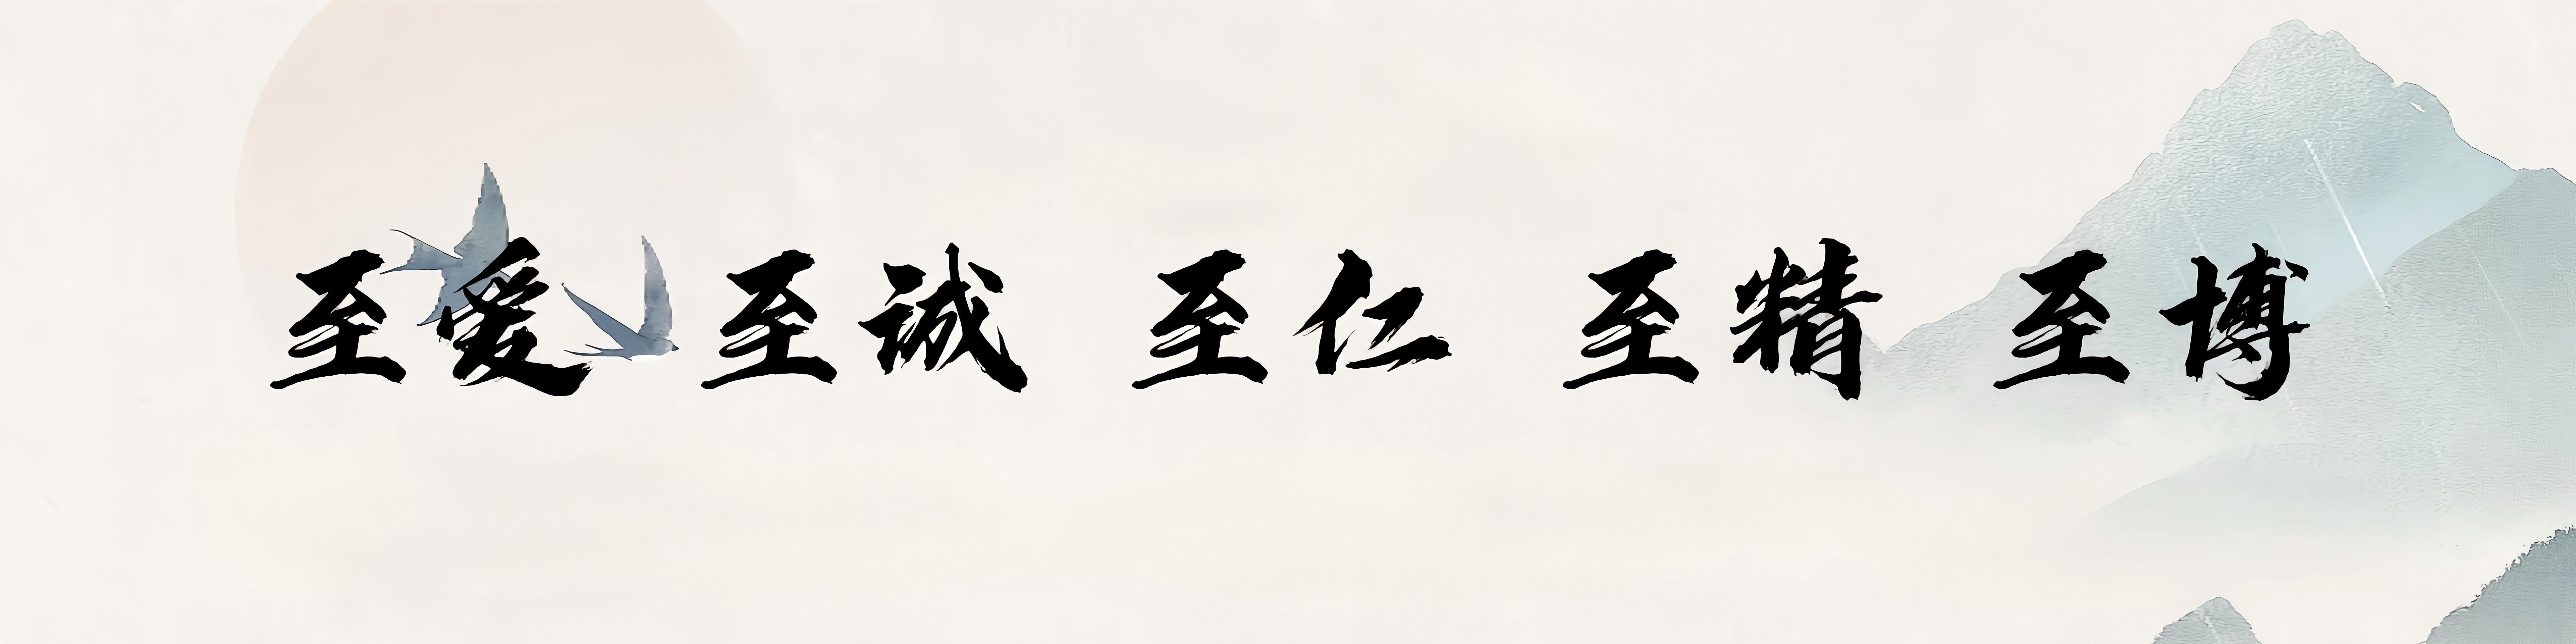 至爱 至诚 至仁 至精 至博